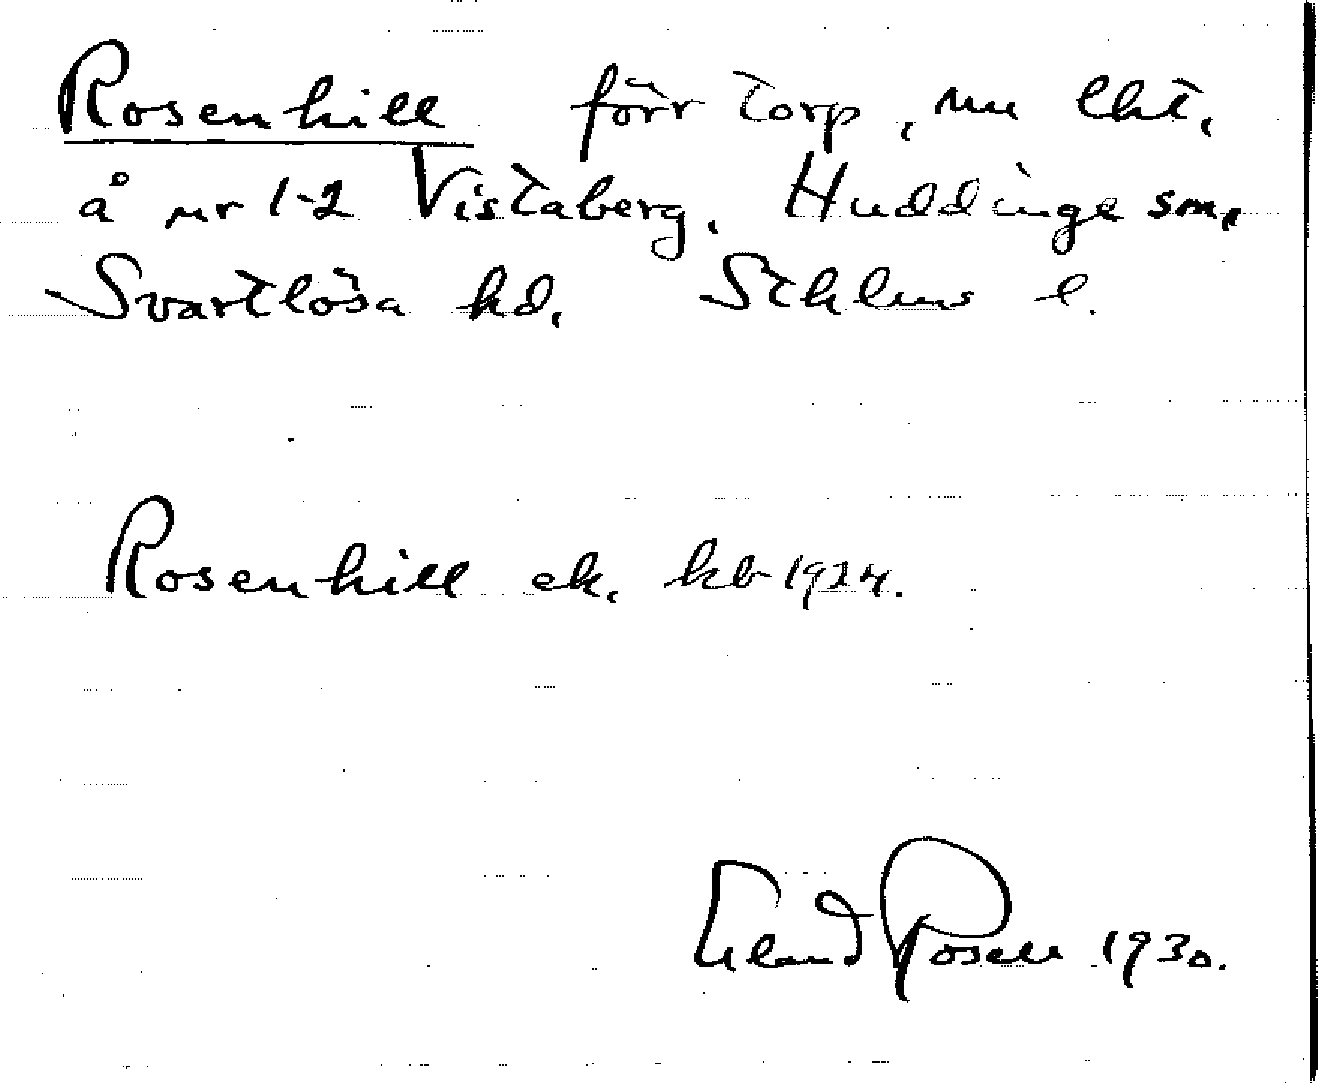 Rosenhill förr torp, nu lht.
å nr 1-2 Vistaberg. Huddinge sn.
Svartlösa hd. Sthlms l.
Rosenhill ek. kb 1924.
Erland Rosell 1930.